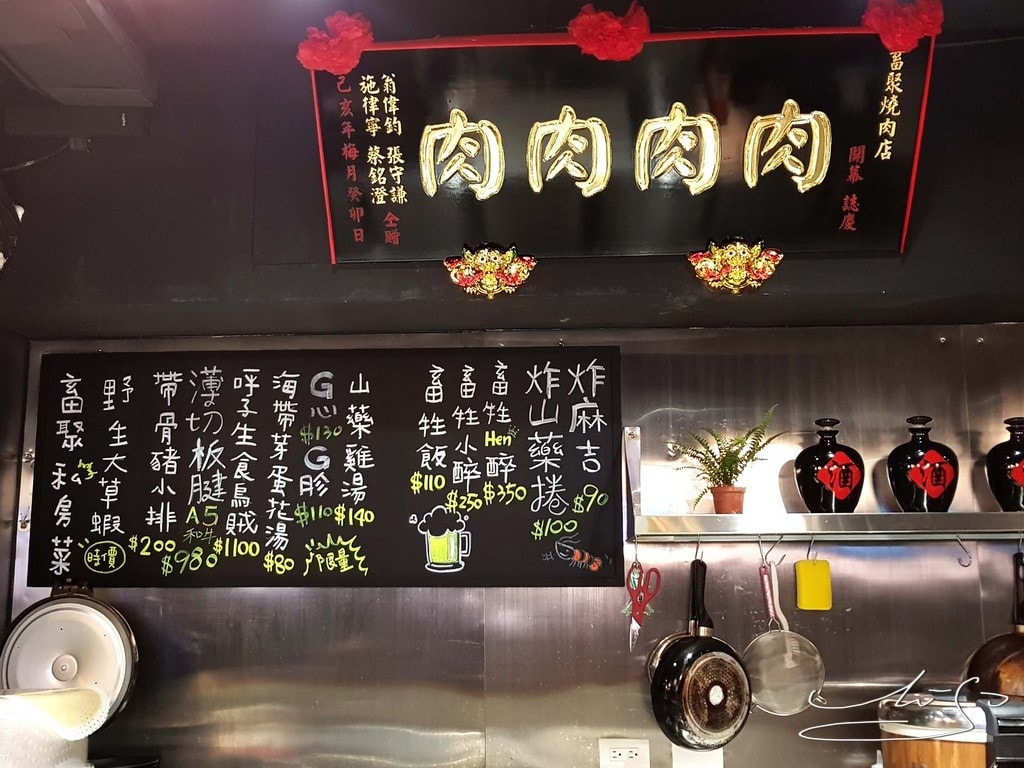 畜聚燒肉店
開幕誌慶
肉肉肉肉
翁偉鈞 張守謙
施律寧 蔡銘澄 仝贈
己亥年梅月癸卯日
炸麻吉 $90
炸山藥捲 $100
畜牲Hen醉 $350
畜牲小醉 $250
畜牲飯 $110
山藥雞湯 $140
G心 $130
G胗 $110
限量
海帶芽蛋花湯 $80
呼子生食烏賊 $1100
薄切板腱 A5和牛 $980
帶骨豬小排 $200
野生大草蝦 時價
畜聚私房菜
酒
酒